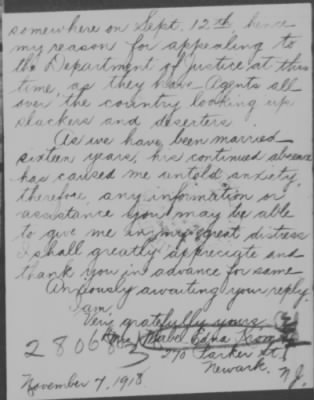 somewhere on Sept. 12th hence
my reason for appealing to
the Department of justice at this
time, as they have Agents all
over the country looking up
slackers and deserters.
As we have been married
sixteen years, his continued absence
has caused me untold anxiety,
therefore, any information or
assistance you may be able
to give me in my great distress
I shall greatly appreciate and
thank you in advance for same
Anxiously awaiting your reply,
I am,
Very gratefully yours,
Mrs. Mabel Edna
270 Parker St.
28068
Newark, N.J.
November 7, 1918